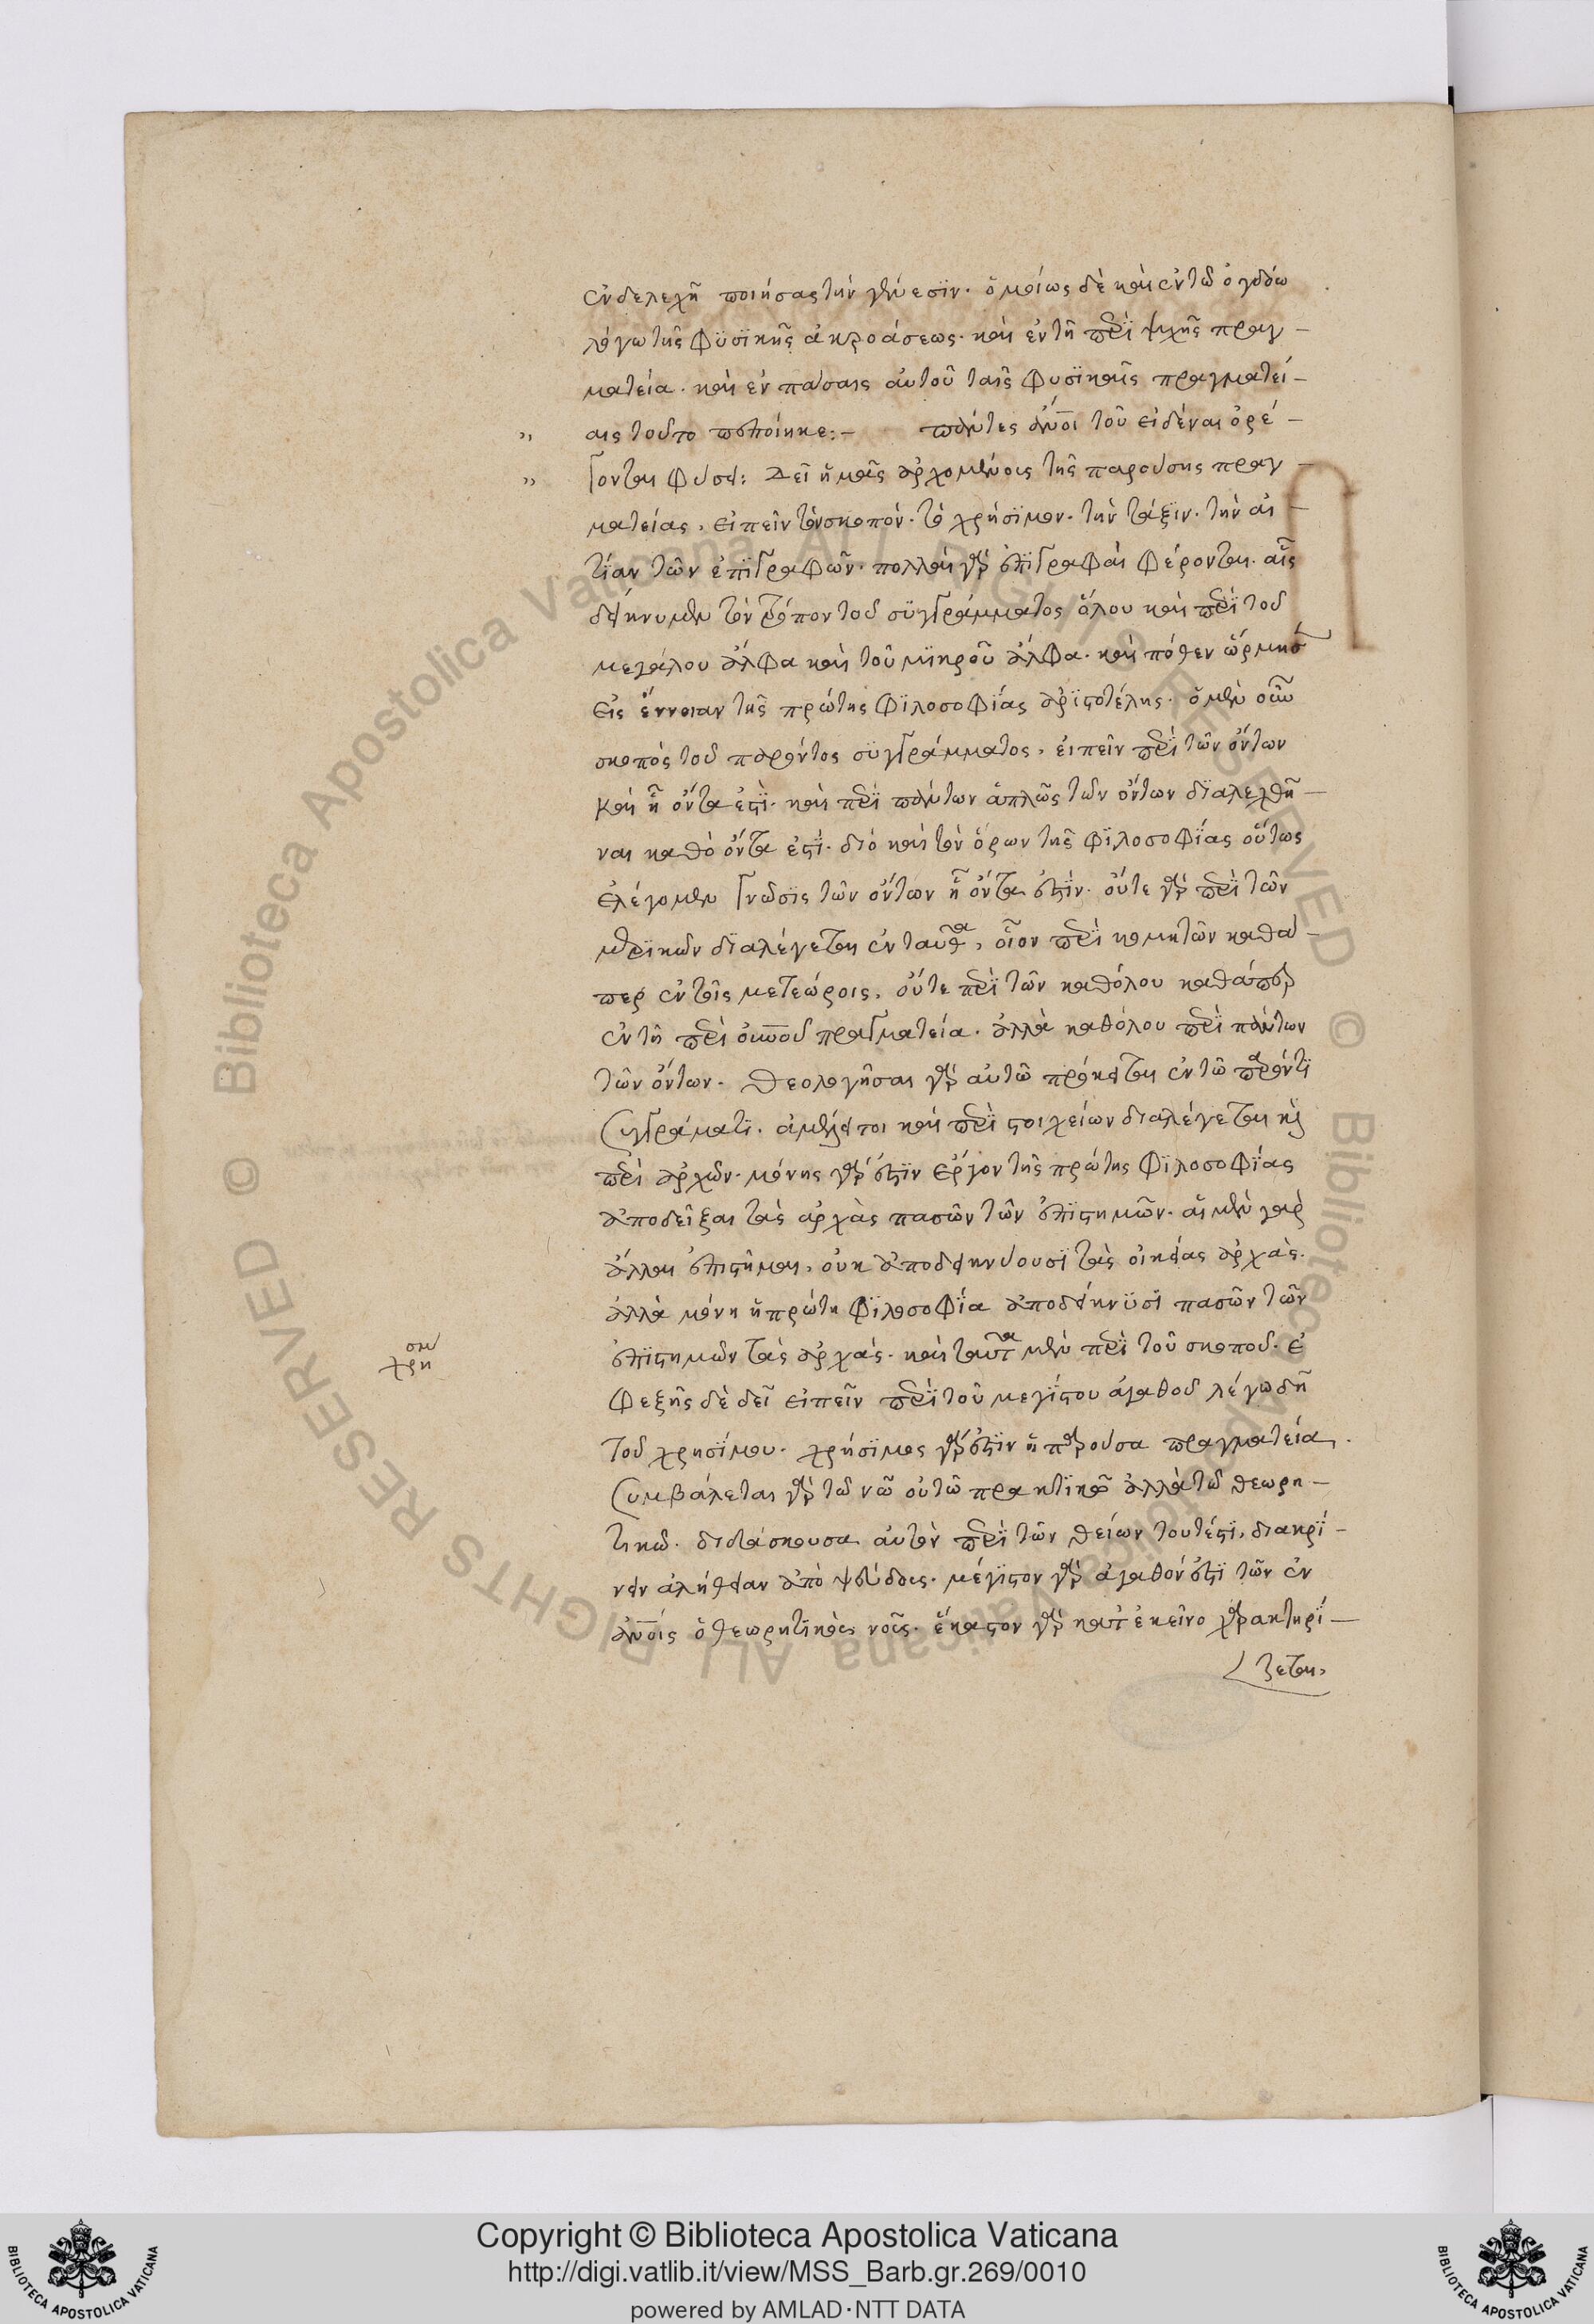 ἐνδελεχῆ ποιήσας τὴν γένεσιν. ὁμοίως δὲ καὶ ἐν τῶ ὀγδόω
λόγω τῆς φυσικῆς ἀκροάσεως. καὶ ἐν τῆ περὶ ψυχῆς πραγ-
ματεία. καὶ ἐν πάσαις αὐτοῦ ταῖς φυσικαῖς πραγματεί-
" αις τοῦτο πεποίηκε:- πάντες ἄνοι τοῦ εἰδέναι ὀρέ-
" γονται φύσει: Δεῖ ἡμᾶς ἀρχομένους τῆς παρούσης πραγ-
ματείας, εἰπεῖν τὸν σκοπὸν. τὸ χρήσιμον. τὴν τάξιν. τὴν αἰ-
τίαν τῶν ἐπιγραφῶν. πολλαὶ γὰρ ἐπιγραφαὶ φέρονται. αἷς
δείκνυμεν τὸν τρόπον τοῦ συγγράμματος ὅλου καὶ περὶ τοῦ
μεγάλου ἄλφα καὶ τοῦ μικροῦ ἄλφα. καὶ πόθεν ὥρμησ
εἰς ἔννοιαν τῆς πρώτης φιλοσοφίας ἀριστοτέλης. ὁ μὲν οὖν
σκοπὸς τοῦ παρόντος συγγράμματος, εἰπεῖν περὶ τῶν ὄντων
καὶ ἧ ὄντα ἐστὶ. καὶ περὶ πάντων ἁπλῶς τῶν ὄντων διαλεχθῆ-
ναι καθὸ ὄντα ἐστί. διὸ καὶ τὸν ὅρων τῆς φιλοσοφίας οὕτως
ἐλέγομεν γνῶσις τῶν ὄντων ἧ ὄντα ἐστίν. οὔτε γὰρ περὶ τῶν
μερικῶν διαλέγεται ἐνταῦθα, οἷον περὶ κομητῶν καθά-
περ ἐν τοῖς μετεώροις, οὔτε περὶ τῶν καθόλου καθάπερ
ἐν τῆ περὶ οὐνοῦ πραγματεία. ἀλλὰ καθόλου περὶ πάντων
τῶν ὄντων. θεολογῆσαι γὰρ αὐτῶ πρόκειται ἐν τῶ παρόντι
συγγράματι. ἀμέλει τοι καὶ περὶ στοιχείων διαλέγεται καὶ
περὶ ἀρχῶν. μόνης γάρ ἐστιν ἔργον τῆς πρώτης φιλοσοφίας
ἀποδεῖξαι τὰς ἀρχὰς πασῶν τῶν ἐπιστημῶν. αἱ μὲν γὰρ
ἄλλαι ἐπιστῆμαι, οὐκ ἀποδεικνύουσι τὰς οἰκείας ἀρχὰς.
ἀλλὰ μόνη ἡ πρώτη φιλοσοφία ἀποδείκνυσι πασῶν τῶν
ἐπιστημῶν τὰς ἀρχάς. καὶ ταῦτα μὲν περὶ τοῦ σκοποῦ. ἐ
φεξῆς δὲ δεῖ εἰπεῖν περὶ τοῦ μεγίστου ἀγαθοῦ λέγω δὴ
τοῦ χρησίμου. χρήσιμος γάρ ἐστιν ἡ παροῦσα πραγματεία.
συμβάλεται γὰρ τῶ νῶ οὐ τῶ πρακτικῶ ἀλλὰ τῶ θεωρη-
τικῶ. διδάσκουσα αὐτὸν περὶ τῶν θείων τουτέστι, διακρί-
νειν ἀλήθειαν ἀπὸ ψεύδους. μέγιστον γὰρ ἀγαθόν ἐστι τῶν ἐν
ἀνοίς ὁ θεωρητικὸς νοῦς. ἕκαστον γὰρ κατ ἐκεῖνο χαρακτηρί-
ζεται,
ση
χρη
Copyright © Biblioteca Apostolica Vaticana
http://digi.vatlib.it/view/MSS_Barb.gr.269/0010
powered by AMLAD·NTT DATA